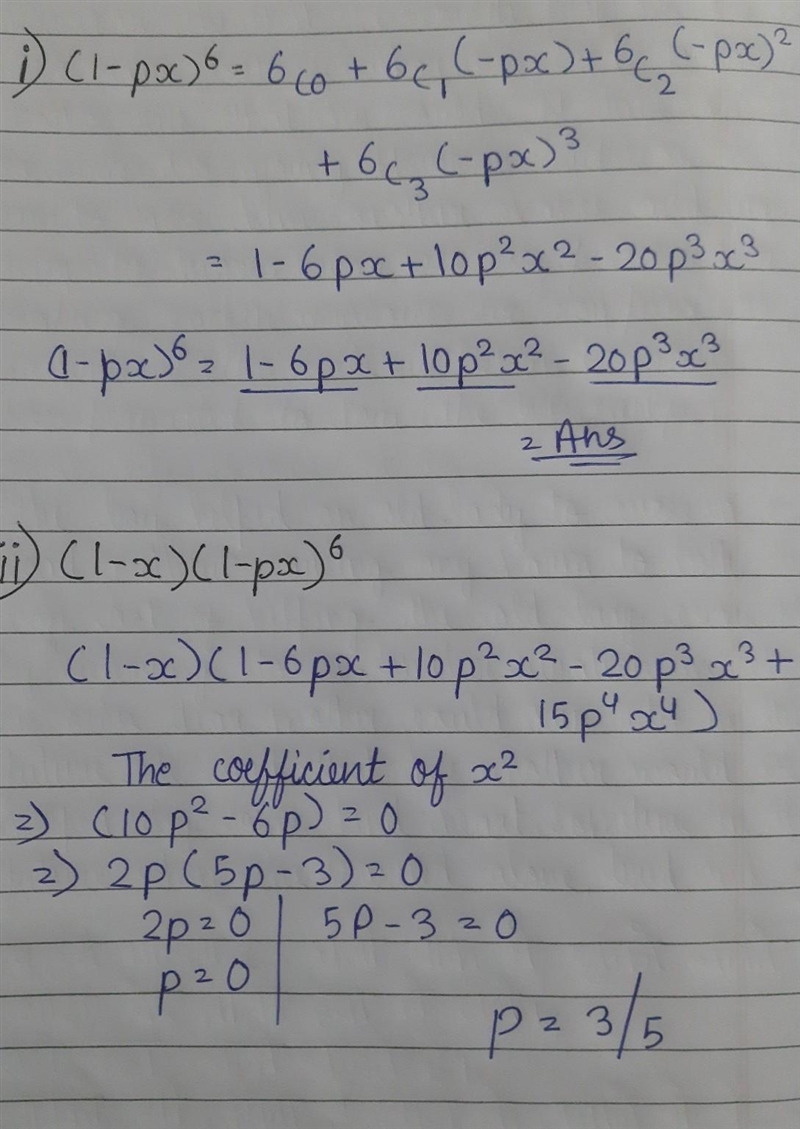 i) (1-px)⁶ = 6C0 + 6C₁(-px) + 6C₂(-px)²
+ 6C₃(-px)³
= 1 - 6px + 10p²x² - 20p³x³
(1-px)⁶ = 1 - 6px + 10p²x² - 20p³x³
= Ans
ii) (1-x)(1-px)⁶
(1-x)(1-6px + 10p²x² - 20p³x³ +
15p⁴x⁴)
The coefficient of x²
=) (10p² - 6p) = 0
=) 2p(5p-3) = 0
2p = 0 | 5p - 3 = 0
p = 0
p = 3/5